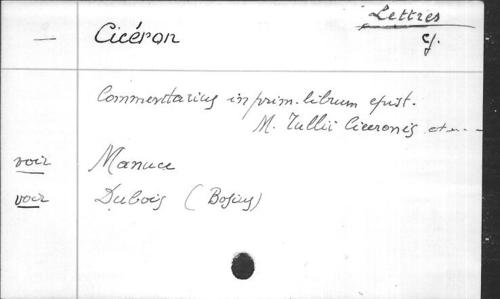 Lettres
— Cicéron cf.
Commentarius in prim. librum epist.
M. Tullii Ciceronis et
voir Manuce
voir Dubois (Bosius)